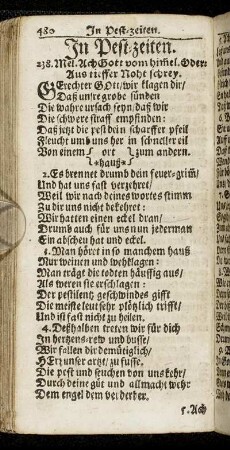 480 In Pest-zeiten.
In Pest-zeiten.
238. Mel. Ach Gott vom himel. Oder:
Aus tieffer Noht schrey.
GErechter GOtt/ wir klagen dir/
Daß unsre grobe sünden
Die wahre ursach seyn/ daß wir
Die schwere straff empfinden:
Daß jetzt die pest dein scharffer pfeil
Fleucht umb uns her in schneller eil
Von einem { ort } zum andern.
hauß
2. Es brennet drumb dein feuer-grim/
Und hat uns fast verzehret/
Weil wir nach deines wortes stimm
Zu dir uns nicht bekehret:
Wir hatten einen eckel dran/
Drumb auch für uns nun jederman
Ein abscheu hat und eckel.
3. Man höret in so manchem hauß
Nur weinen und wehklagen:
Man trägt die todten häuffig aus/
Als weren sie erschlagen:
Der pestilentz geschwindes gifft
Die meiste leut sehr plötzlich trifft/
Und ist fast nicht zu heilen.
4. Deßhalben treten wir für dich
In hertzens-rew und busse/
Wir fallen dir demütiglich/
HErr unser artzt/ zu fusse.
Die pest und seuchen von uns kehr/
Durch deine güt und allmacht wehr
Dem engel dem verderber.
5. Ach